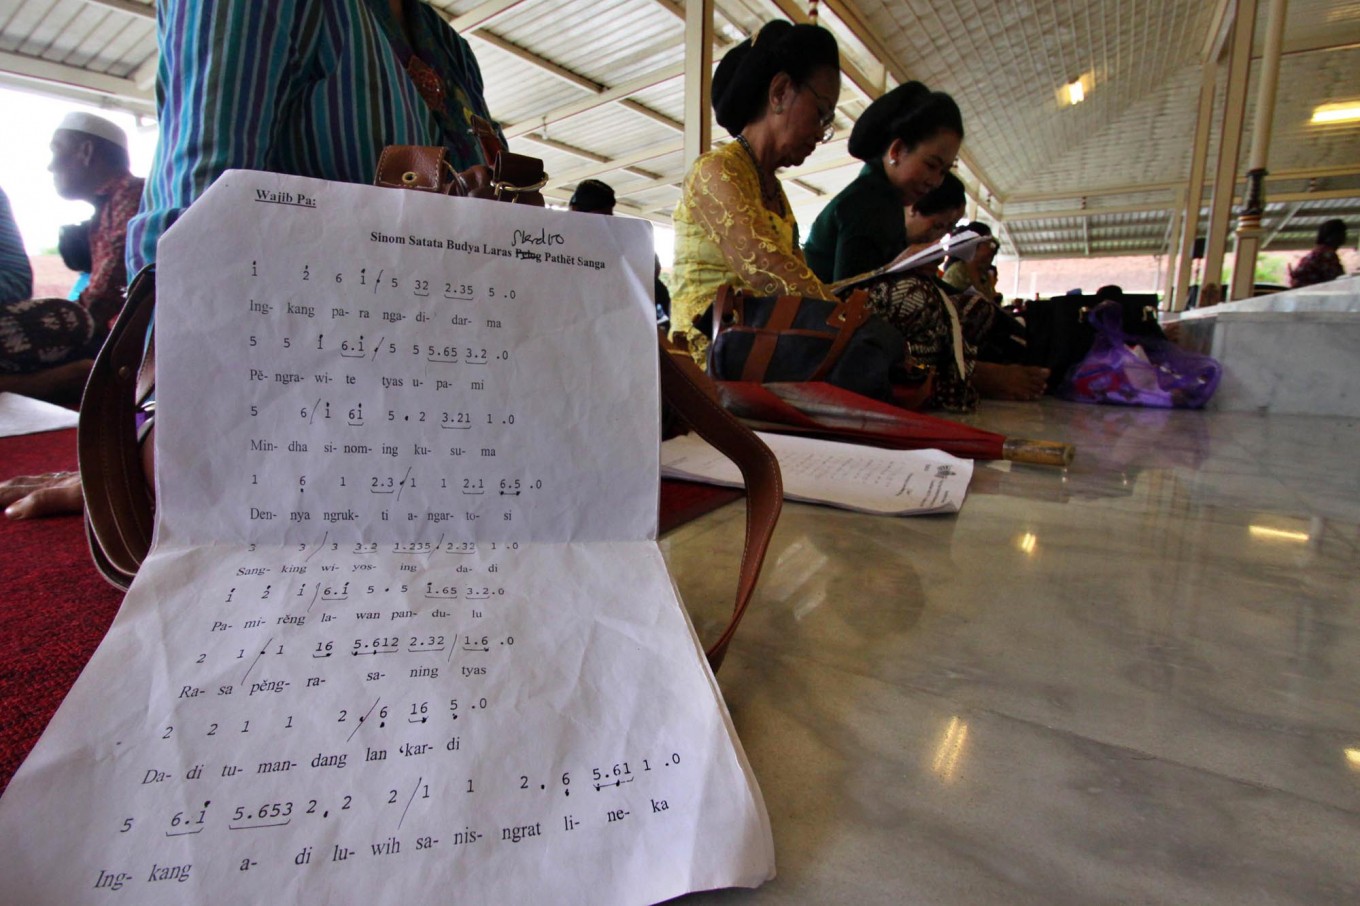 Wajib Pa:
Slendro
Sinom Satata Budya Laras Pelog Pathĕt Sanga
i̇ 2̇ 6 i̇ / 5 32 2.35 5 .0
Ing- kang pa- ra nga- di- dar- ma
5 5 i̇ 6.i̇ / 5 5 5.65 3.2 .0
Pĕ- ngra- wi- te tyas u- pa- mi
5 6 / i̇ 6i̇ 5 . 2 3.21 1 .0
Min- dha si- nom- ing ku- su- ma
1 6̣ 1 2.3 / 1 1 2.1 6̣.5̣ .0
Den- nya ngruk- ti a- ngar- to- si
3 3 / 3 3.2 1.235 . 2.32 1 .0
Sang- king wi- yos- ing da- di
i̇ 2̇ i̇ / 6.i̇ 5 . 5 i̇.65 3.2.0
Pa- mi- rĕng la- wan pan- du- lu
2 1 / . 1 16̣ 5̣.6̣12 2.32 / 1.6̣ .0
Ra- sa pĕng- ra- sa- ning tyas
2 2 1 1 2 . / 6̣ 16̣ 5̣ .0
Da- di tu- man- dang lan ‘kar- di
5 6.i̇ 5.653 2 . 2 2 / 1 1 2 . 6̣ 5̣.6̣1 1 .0
Ing- kang a- di lu- wih sa- nis- ngrat li- ne- ka